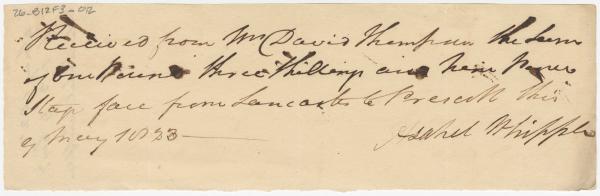 26-B12F3-012
Received from Mr David Thompson the Sum
of One Pound three Shillings and Nine Pence
Stage fare from Lancaster to Prescott this
9 May 1823
Asahel Whipple